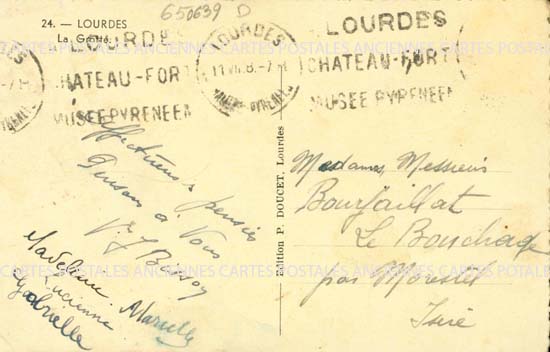 650639 D
24. — LOURDES
La Grotte
LOURDES
CHATEAU-FORT
MUSEE PYRENEEN
LOURDES
LOURDES
CHATEAU-FORT
MUSEE PYRENEEN
CARTES POSTALES ANCIENNES CARTES POSTALES ANCIENNES CARTES POSTALES
Affectueuses pensées
Pensons a Vous
Madeleine
Lucienne
Marcelle
Gabrielle
Edition P. DOUCET, Lourdes
Mesdames, Messieurs
Bourjaillat
Le Bouchage
par Morestel
Isère
CARTES POSTALES ANCIENNES CARTES POSTALES ANCIENNES CARTES POSTALES